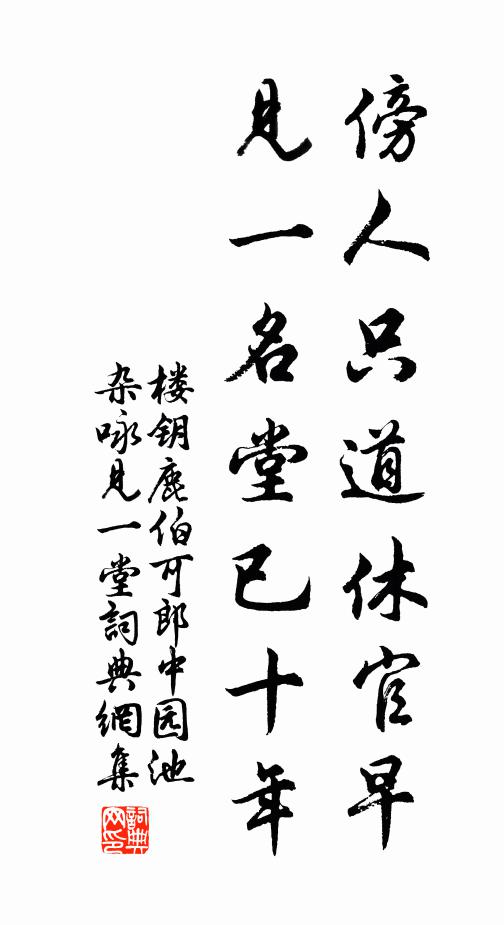 傍人只道休官早
見一名堂已十年
楼钥鹿伯可郎中园池
杂咏見一堂詞典網集
詞典
网印